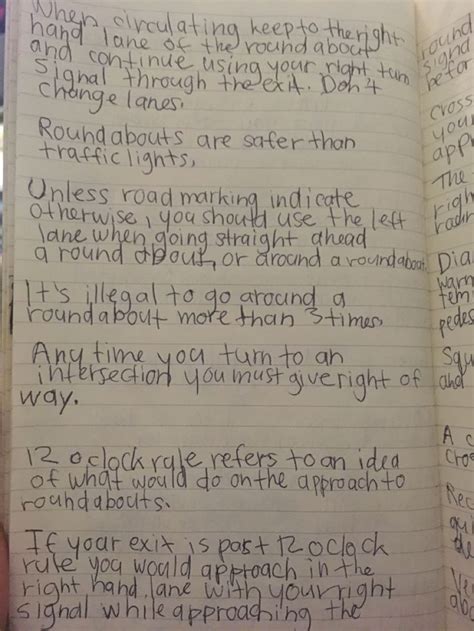 When circulating keep to the right
hand lane of the roundabout
and continue using your right turn
signal through the exit. Don't
change lanes.
Roundabouts are safer than
traffic lights,
Unless road marking indicate
otherwise, you should use the left
lane when going straight ahead
a round about, or around a roundabout
It's illegal to go around a
roundabout more than 3 times,
Any time you turn to an
intersection you must give right of
way.
12 o,clock rule refers to an idea
of what would do on the approach to
roundabouts.
If your exit is past 12 o clock
rule you would approach in the
right hand lane with your right
signal while approaching the
round
signal
befor
cross
your
appr
The
righ
Dia
warn
tem
pedes
Squ
and
A c
cros
Rec
gui
the